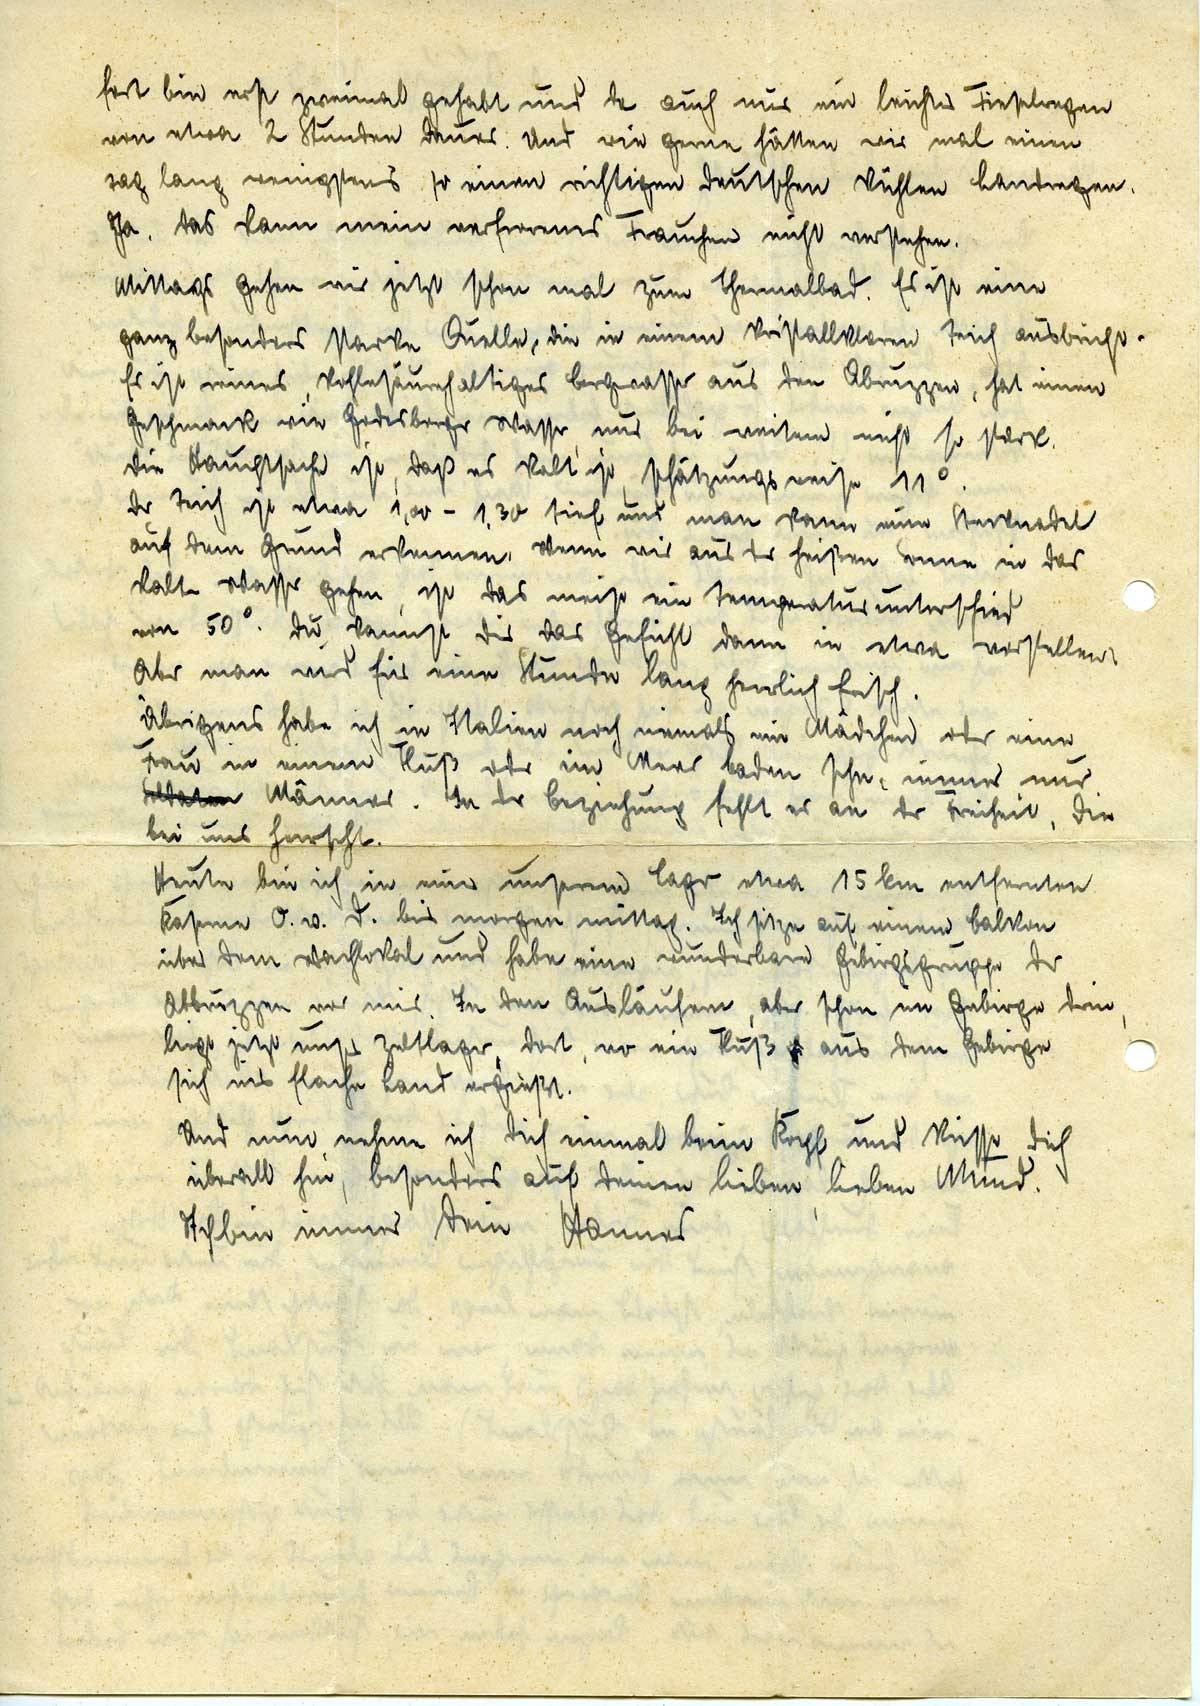 fort bin erst zweimal gehabt und da auch nur ein leichter Fieselregen
von etwa 2 Stunden Dauer. Und wie gerne hätten wir mal einen
Tag lang wenigstens so einen richtigen deutschen kühlen Landregen.
Ja, das kann mein verfrorenes Frauchen nicht verstehen.
Mittags gehen wir jetzt schon mal zum Thermalbad. Es ist eine
ganz besonders starke Quelle, die in einem kristallklaren Teich ausbricht.
Es ist reines, kohlesäurehaltiges Bergwasser aus den Abruzzen, hat einen
Geschmack wie Godesberger Wasser, nur bei weitem nicht so stark.
Die Hauptsache ist, daß es kalt ist, schätzungsweise 11°.
Der Teich ist etwa 1,00 - 1,30 tief und man kann eine Stecknadel
auf dem Grund erkennen. Wenn wir aus der heißen Sonne in das
kalte Wasser gehen, ist das meist ein Temperaturunterschied
von 50°. Du kannst dir das Gefühl dann in etwa vorstellen.
Aber man wird für eine Stunde lang herrlich frisch.
Übrigens habe ich in Italien noch niemals ein Mädchen oder eine
Frau in einem Fluß oder im Meer baden sehn, immer nur
Männer. In der Beziehung fehlt es an der Freiheit, die
bei uns herrscht.
Heute bin ich in einer unserem Lager etwa 15 km entfernten
Kaserne O. v. D. bis morgen mittag. Ich sitze auf einem Balkon
über dem Wachlokal und habe eine wunderbare Gebirgsgruppe der
Abbruzzen vor mir. In den Ausläufern, aber schon im Gebirge drin,
liegt jetzt unser Zeltlager, dort, wo ein Fluß aus dem Gebirge
sich ins flache Land ergießt.
Und nun nehme ich Dich einmal beim Kopf und küsse Dich
überall hin, besonders auf deinen lieben, lieben Mund.
Ich bin immer Dein Hannes